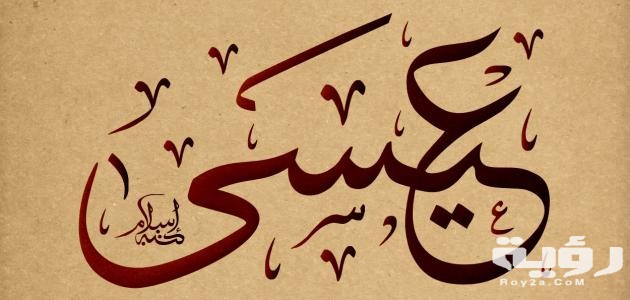 عيسى
كتبه إسلام
رؤية
Roy2a.CoM